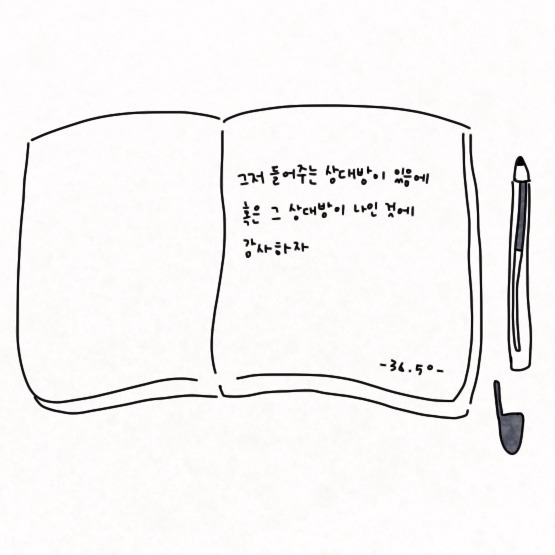 그저 들어주는 상대방이 있음에
혹은 그 상대방이 나인 것에
감사하자
-36.5°-